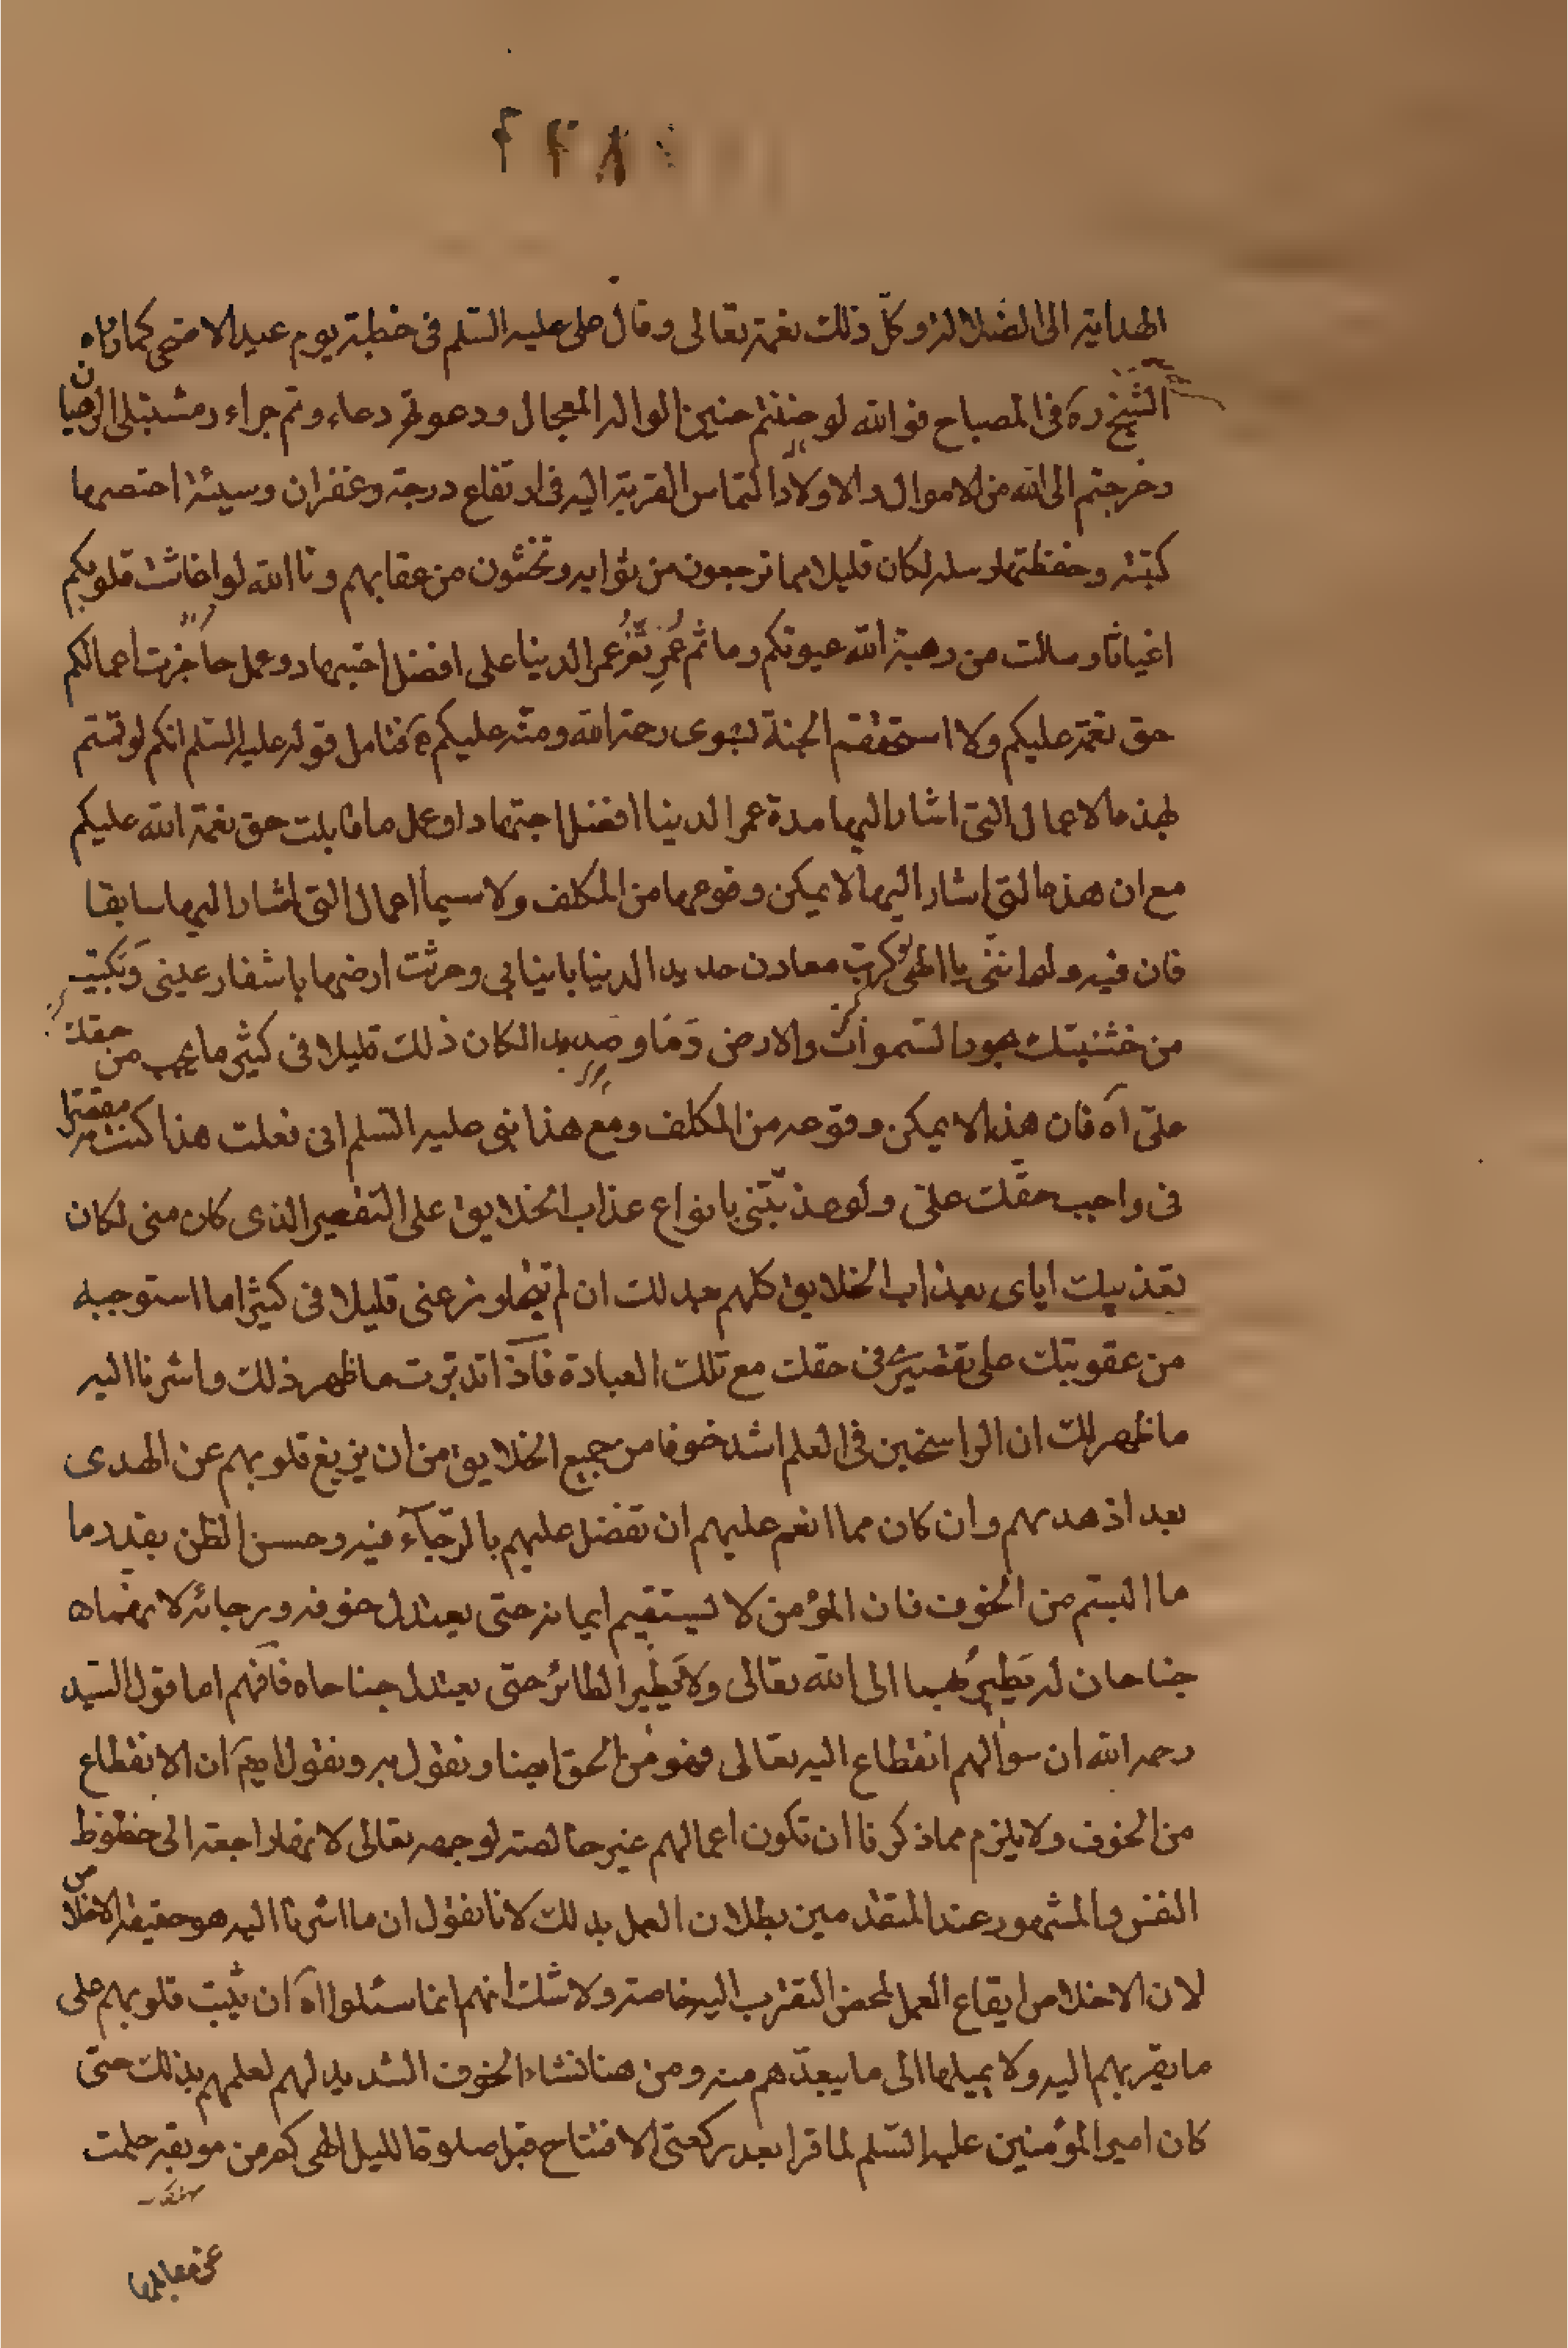 الهداية الى الضلالة وكلّ ذلك نعمته تعالى وقال على عليه السّلم فى خطبة يوم عيد الاضحى كما رواه
الشيخ ره فى المصباح فو الله لو حننتم حنين الواله المعجال ودعوتم دعاء وتم جراء رمتبتلى الرهبان
وخرجتم الى الله من الاموال والاولاد التماس القربة اليه فى ارتفاع درجة وغفران وسيئة احتصها
كتبته وحفظتها رسله لكان قليلا مما ترجعون من ثوابه وتخشون من عقابهم وتاالله لو اغاثت قلوبكم
اغياثا وسالت من رهبة الله عيونكم وما ثم عُمِر تَعُزُ عمر الدينا على افضل اجتهاد وعمل ما جزت اعمالكم
حق نعمته عليكم ولا استحققتم الجنة بسوى رحمة الله ومنّه عليكم ة فتامل قوله عليه السّلم انكم لو قمتم
لهذه الاعمال التى اشار اليها مدة عمر الدينا افضل اجتهاد او عمل ما قابلت حق نعمة الله عليكم
مع ان هذه التى اشار اليها لا يمكن وقوعها من المكلف ولا سيما اعمال التى اشار اليها سابقا
فان فيه ولو اننى يا الهى كربت معادن حديد الدينا بانيابى وحرثت ارضها باشفار عينى وَبَكيت
من خشيتك بحور السّموات والارض دَمًا وصديدا لكان ذلك قليلا فى كثير ما يجب من حقك
علىّ اه فان هذا لا يمكن وقوعه من المكلف ومع هذا نبى عليه السّلم انى فعلت هذا كنت مقصّرا
فى واجب حقّك علىّ ولو عذبّتنى بانواع عذاب الخلايق على التقصير الذى كان منى لكان
تعذيبك اياى بعذاب الخلايق كلهم بعدلك ان لم تجاوز عنى قليلا فى كثير اما استوجبه
من عقوبتك على تقصيرى فى حقك مع تلك العبادة فاذا تدبّرت ما ظهر ذلك واشرنا اليه
ما ظهر لك ان الراسخين فى العلم اشد خوفا من جميع الخلايق من ان يزيغ قلوبهم عن الهدى
بعد اذ هديهم وان كان مما انعم عليهم ان تفضل عليهم بالرّجآء فيه وحسن الظن بقدر ما
ما البستم من الخوف فان المؤمن لا يستقيم ايمانه حتى يعتدل خوفه ورجائه لانهماه
جناحان له يَطيرُ بهما الى الله تعالى ولا يَطير الطائر حتى يعتدل جناحاه فافهم اما قول السّيد
رحمه الله ان سوالهم انقطاع اليه تعالى فهو من الحق ايضا ونقول به ونقول ايضا ان الانقطاع
من الخوف ولا يلزم مما ذكرنا ان تكون اعمالهم غير خالصة لوجهه تعالى لانها راجعة الى حظوظ
النفس والمشهور عند المتقدمين بطلان العمل بذلك لانا نقول ان ما اشرنا اليه هو حقيقة الاخلاص
لان الاخلاص ايقاع العمل لمحض التقرب اليه خاصة ولا شك انهم انما سئلوا اه ان يثبت قلوبهم على
ما يقربهم اليه ولا يميلها الى ما يبعدّهم منه ومن هنا نشاء الخوف الشديد لهم لعلمهم بذلك حتى
كان امير المؤمنين عليه السّلم لما قرا بعد ركعتى الافتتاح قبل صلوة الليل الهى كم من موبقة حلمت
عن مقابلتها